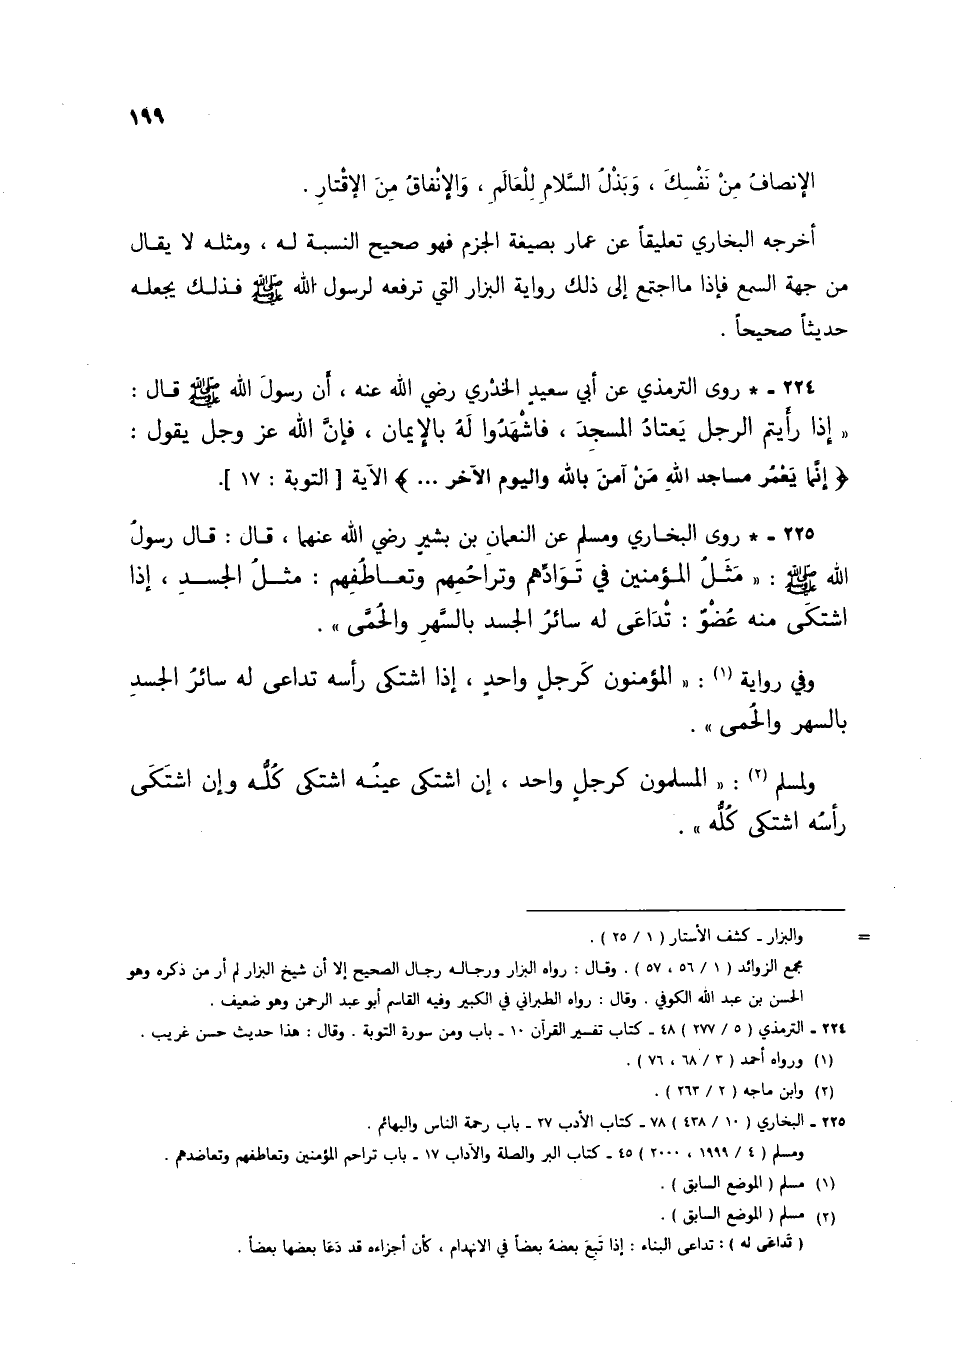 ١٩٩
الإنصافُ مِنْ نَفْسِكَ ، وَبَذْلُ السَّلامِ لِلْعَالَمِ ، وَالإنْفاقُ مِنَ الإقْتارِ .
أخرجه البخاري تعليقاً عن عمار بصيغة الجزم فهو صحيح النسبة لـه ، ومثلـه لا يقـال
من جهة السمع فإذا مااجتمع إلى ذلك رواية البزار التي ترفعه لرسول الله ﷺ فـذلـك يجعلـه
حديثاً صحيحاً .
٢٢٤ - * روى الترمذي عن أبي سعيدٍ الخدْري رضي الله عنه ، أن رسولَ الله ﷺ قـال :
« إذا رأيتم الرجل يَعتادُ المسجدَ ، فاشْهَدُوا لَهُ بالإيمان ، فإنَّ الله عز وجل يقول :
﴿ إنَّما يَعْمُر مساجد اللهِ مَنْ آمنَ بالله واليوم الآخر ... ﴾ الآية [ التوبة : ١٧ ].
٢٢٥ - * روى البخـاري ومسلم عن النعمان بن بشيرٍ رضي الله عنهما ، قـال : قـال رسولُ
الله ﷺ : « مَثَـلُ المـؤمنين في تَـوَادِّهم وتراحُمِهم وتعـاطُفِهم : مثـلُ الجسـدِ ، إذا
اشتكَى منه عُضْوٌ : تْدَاعَى له سائرُ الجسد بالسَّهرِ والحُمَّى » .
وفي رواية (١) : « المؤمنون كَرجلٍ واحدٍ ، إذا اشتكى رأسه تداعى له سائرُ الجسدِ
بالسهر والحُمى » .
ولمسلم (٢) : « المسلمون كرجلٍ واحد ، إن اشتكى عينُـه اشتكى كُلُّـه وإن اشتَكَى
رأسُه اشتكى كُلُّه » .
= والبزار - كشف الأستار ( ١ / ٢٥ ) .
مجمع الزوائد ( ١ / ٥٦ ، ٥٧ ) . وقـال : رواه البزار ورجالـه رجال الصحيح إلا أن شيخ البزار لم أر من ذكره وهو
الحسن بن عبد الله الكوفي . وقال : رواه الطبراني في الكبير وفيه القاسم أبو عبد الرحمن وهو ضعيف .
٢٢٤ - الترمذي ( ٥ / ٢٧٧ ) ٤٨ - كتاب تفسير القرآن ١٠ - باب ومن سورة التوبة . وقال : هذا حديث حسن غريب .
(١) ورواه أحمد ( ٣ / ٦٨ ، ٧٦ ) .
(٢) وابن ماجه ( ٢ / ٢٦٣ ) .
٢٢٥ - البخاري ( ١٠ / ٤٣٨ ) ٧٨ - كتاب الأدب ٢٧ - باب رحمة الناس والبهائم .
ومسلم ( ٤ / ١٩٩٩ ، ٢٠٠٠ ) ٤٥ - كتاب البر والصلة والآداب ١٧ - باب تراحم المؤمنين وتعاطفهم وتعاضدهم .
(١) مسلم ( الموضع السابق ) .
(٢) مسلم ( الموضع السابق ) .
( تَداعَى له ) : تداعى البناء : إذا تَبِعَ بعضهُ بعضاً في الانهدام ، كأن أجزاءه قد دَعَا بعضها بعضاً .